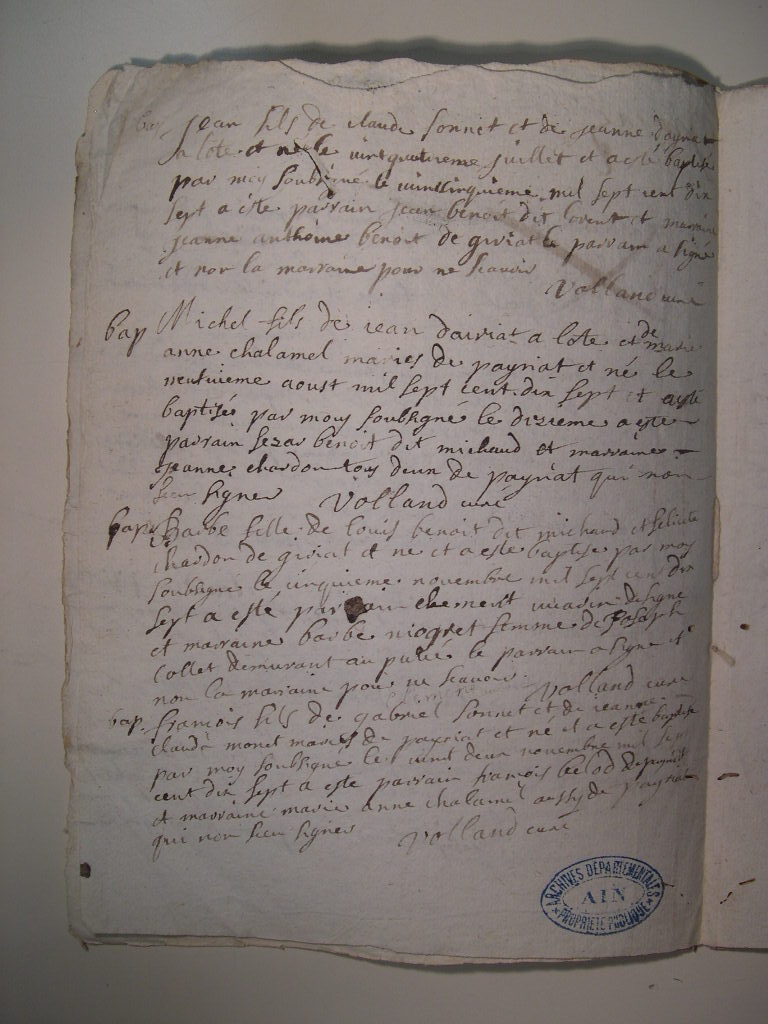 bap jean fils de claude sonnet et de jeanne
a lote et né le vintquatrieme juillet et a esté baptisé
par moy soubsigné le vintcinquieme mil sept cent dix
sept a esté parrain jean benoit dit lovent et marraine
jeanne anthoine benoit de giriat le parrain a signé
et non la marraine pour ne scavoir
Volland curé
bap Michel fils de jean dairiat a lote et de marie
anne chalamel mariés de payriat et né le
neufvieme aoust mil sept cent dix sept et a esté
baptisé par moy soubsigné le dizieme a este
parrain sezar benoit dit michaud et marraine
jeanne chardon tous deux de payriat qui non
sceu signer Volland curé
bap Barbe fille de louis benoit dit michaud et felicite
chardon de giriat et ne et a esté baptise par moy
soubsigne le cinquieme novembre mil sept cent dix
sept a esté parrain clement
et marraine barbe niogret femme de Josaph
collet demurant au le parrain a signe et
non la marraine pour ne scavoir. Volland curé
bap françois fils de gabriel sonnet et de jeanne
claudà monet mariés de payriat et né et a esté baptisé
par moy soubsigne le vint deux novembre mil sept
cent dix sept a este parrain françois belod de payriat
et marraine marie anne chalamel aussy de payriat
qui non sceu signer Volland curé
ARCHIVES DÉPARTEMENTALES
AIN
PROPRIÉTÉ PUBLIQUE